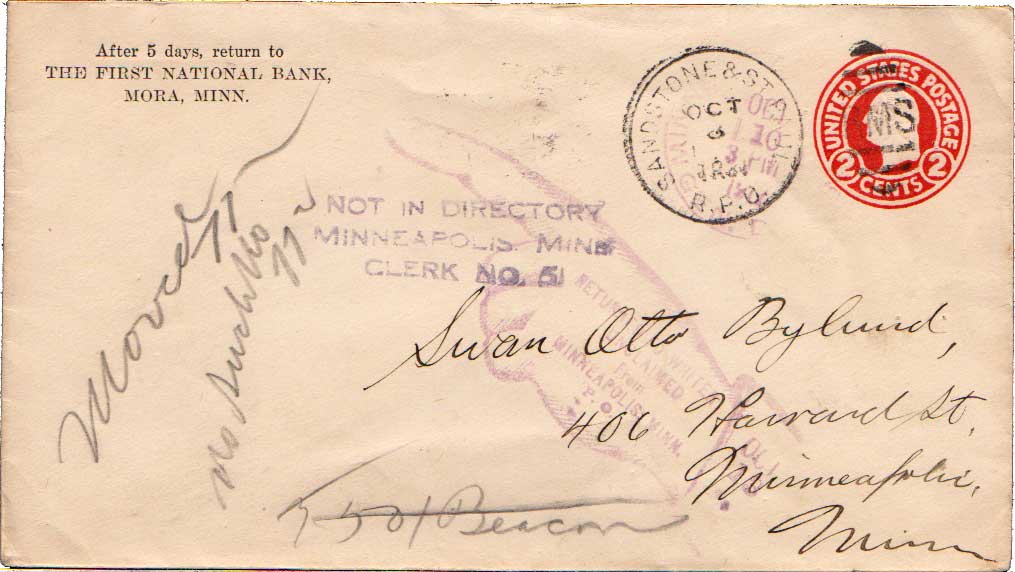 After 5 days, return to
THE FIRST NATIONAL BANK,
MORA, MINN.
SANDSTONE & ST. PAUL
OCT
R.P.O.
OCT
10
3 PM
UNITED STATES POSTAGE
2 CENTS 2
MS
NOT IN DIRECTORY
MINNEAPOLIS, MINN
CLERK NO. 51
Moved 11
No Such No
11
RETURN
WRITER
UNCLAIMED
from
MINNEAPOLIS, MINN.
P.O.
Swan Otto Bylund,
406 Harvard St,
Minneapolis,
Minn
Beacon